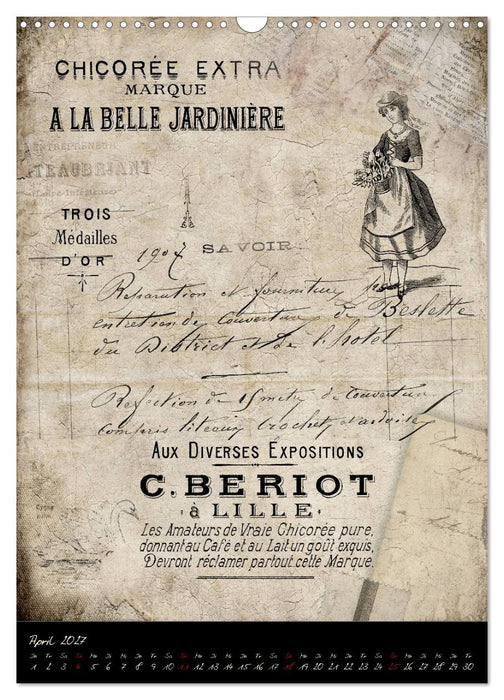 CHICORÉE EXTRA
MARQUE
A LA BELLE JARDINIÈRE
ENTREPRENEUR
TEAUBRIANT
Loire-Inférieure
TROIS
Médailles
D'OR
1907 SAVOIR
Reparation et fourniture pour
entretien de Couverture de Beslette
du District et de l'hotel
Refection de 15 metres de Couverture
Compris liteaux Crochet et ardoises
AUX DIVERSES EXPOSITIONS
C. BERIOT
à LILLE.
Les Amateurs de Vraie Chicorée pure,
donnant au Café et au Lait un goût exquis,
Devront réclamer partout cette Marque.
April 2027
Do Fr Sa So Mo Di Mi Do Fr Sa So Mo Di Mi Do Fr Sa So Mo Di Mi Do Fr Sa So Mo Di Mi Do Fr
1 2 3 4 5 6 7 8 9 10 11 12 13 14 15 16 17 18 19 20 21 22 23 24 25 26 27 28 29 30